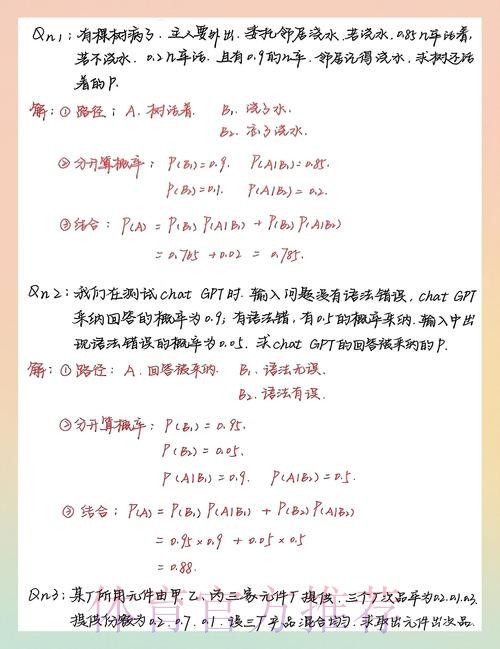 Qn1：有棵树病了．主人要外出．委托邻居浇水．若浇水．0.85几率活着，
若不浇水．0.2几率活．且有0.9的几率．邻居记得浇水．求树还活
着的P．
解：①路径：A．树活着． B₁．浇了水．
B₂．忘了浇水．
②分开算概率：P(B₁)=0.9． P(A|B₁)=0.85．
P(B₂)=0.1． P(A|B₂)=0.2．
③结合：P(A) = P(B₁)P(A|B₁) + P(B₂)P(A|B₂)
= 0.765 + 0.02 = 0.785．
Qn2：我们在测试chat GPT时．输入问题没有语法错误，chat GPT
采纳回答的概率为0.9；有语法错，有0.5的概率采纳．输入中出
现语法错误的概率为0.05．求chat GPT的回答被采纳的P．
解：①路径：A．回答被采纳． B₁．语法无误．
B₂．语法有误．
②分开算概率：P(B₁)=0.95．
P(B₂)=0.05．
P(A|B₁)=0.9． P(A|B₂)=0.5．
③结合：P(A) = P(B₁)P(A|B₁) + P(B₂)P(A|B₂)
= 0.95×0.9 + 0.05×0.5
= 0.88．
Qn3：某厂所用元件由甲．乙．丙三家元件厂提供．三个厂次品率为0.2.0.1.0.3.
提供份额为0.2．0.7．0.1．该三厂产品混合均匀．求取出元件出次品．
体育官方推荐